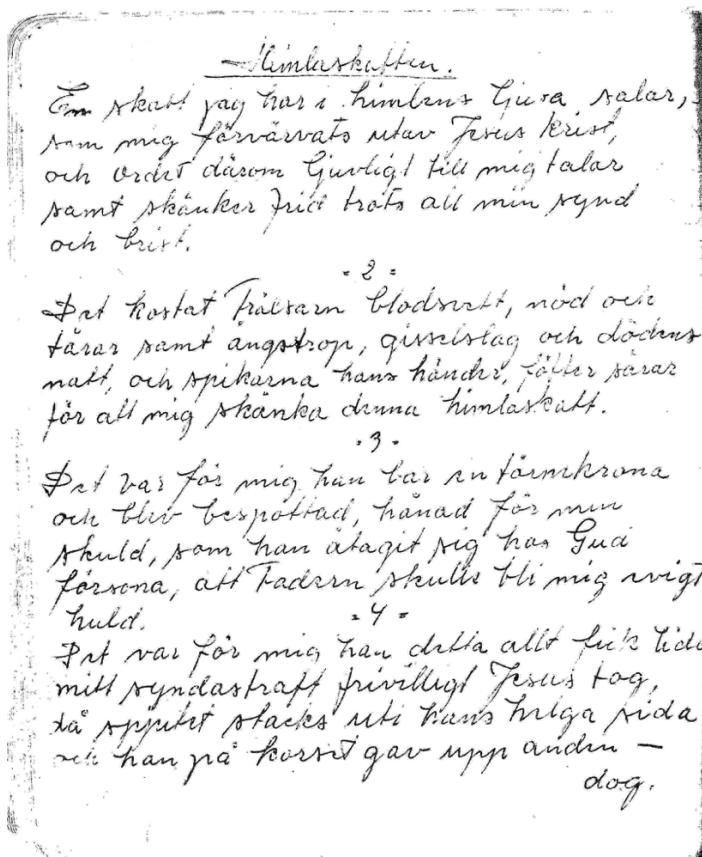 Himlaskatten.
En skatt jag har i himlens ljusa salar,
som mig förvärvats utav Jesus Krist,
och ordet därom ljuvligt till mig talar
samt skänker frid trots all min synd
och brist.
- 2 -
Det kostat Frälsarn blodsvett, nöd och
tårar samt ångstrop, gisselslag och dödens
natt, och spikarna hans händer, fötter sårar
för att mig skänka denna himlaskatt.
- 3 -
Det var för mig han bar en törnekrona
och blev bespottad, hånad för min
skuld, som han åtagit sig hos Gud
försona, att Fadern skulle bli mig evigt
huld.
- 4 -
Det var för mig han detta allt fick lida
mitt syndastraff frivilligt Jesus tog,
då spjutet stacks uti hans helga sida
och han på korset gav upp anden —
dog.